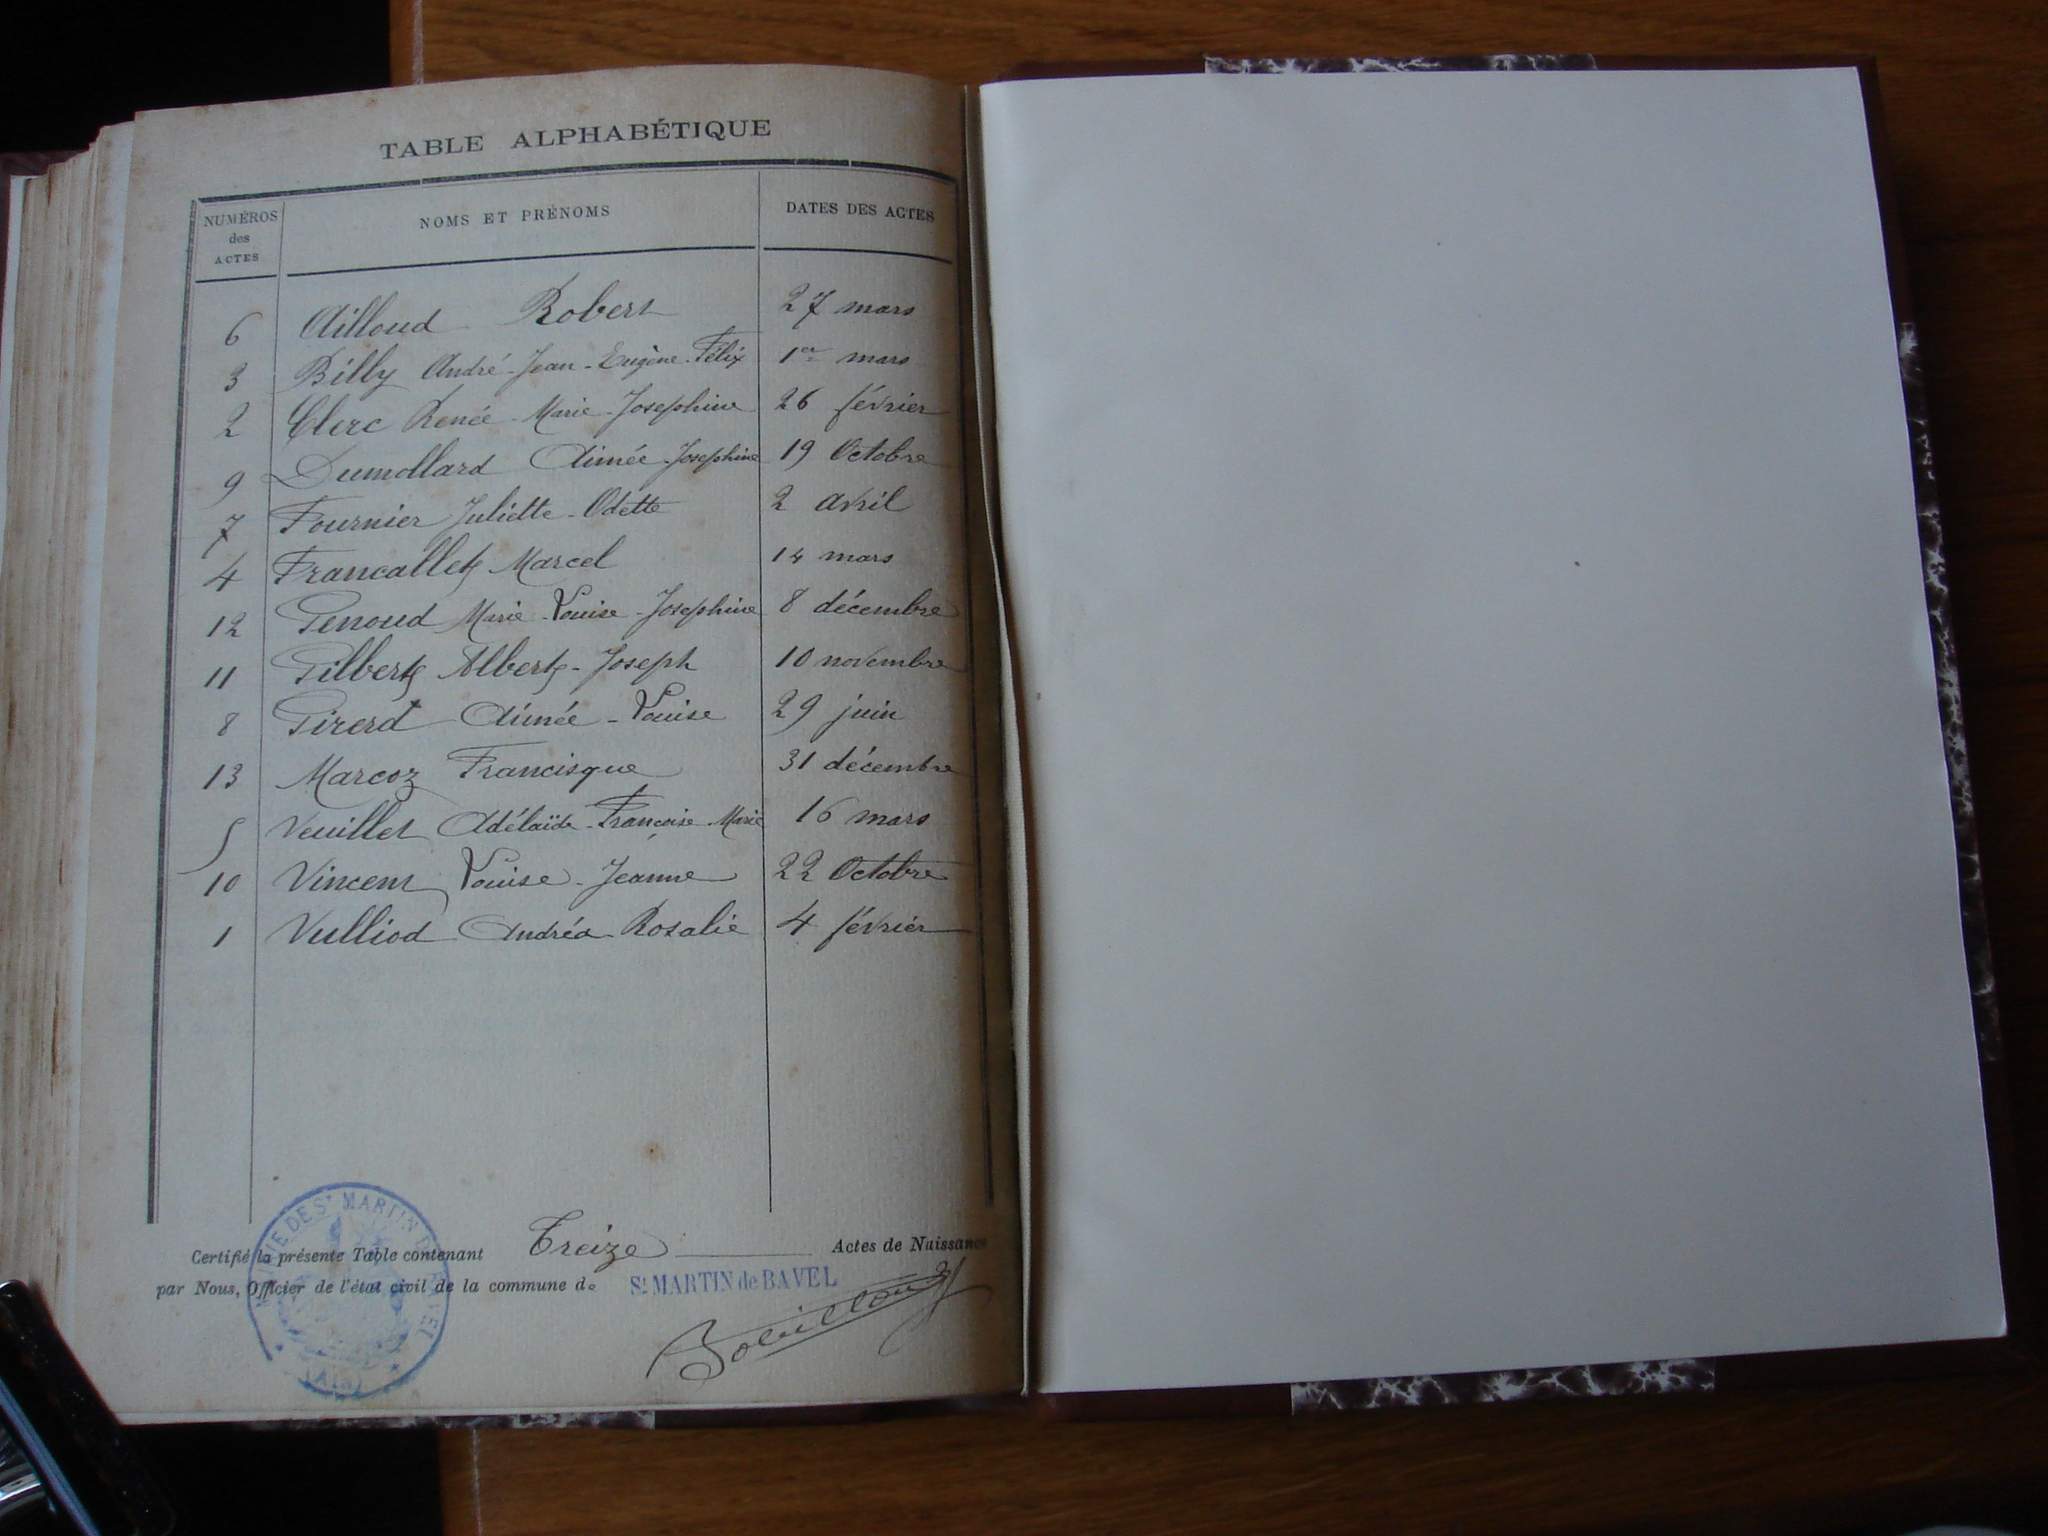 TABLE ALPHABÉTIQUE
NUMÉROS des ACTES NOMS ET PRÉNOMS DATES DES ACTES
6 Ailloud Robert 27 mars
3 Billy André-Jean-Eugène-Félix 1er mars
2 Clerc Renée-Marie-Josephine 26 février
9 Dumollard Aimée-Josephine 19 Octobre
7 Fournier Juliette-Odette 2 avril
4 Francallet Marcel 14 mars
12 Genoud Marie-Louise-Josephine 8 décembre
11 Gilbert Albert-Joseph 10 novembre
8 Girerd Aimée-Louise 29 juin
13 Marcoz Francisque 31 décembre
5 Veuillet Adélaïde-Françoise-Marie 16 mars
10 Vincent Louise-Jeanne 22 Octobre
1 Vulliod Andréa Rosalie 4 février
Certifié la présente Table contenant Treize Actes de Naissance
par Nous, Officier de l'état civil de la commune de St MARTIN de BAVEL
MAIRIE DE St MARTIN DE BAVEL
(AIN)